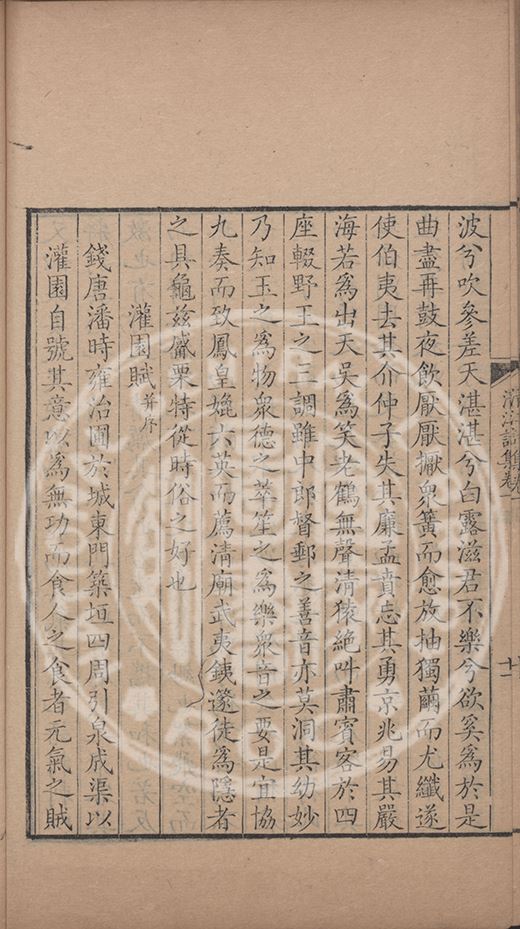 波兮吹參差天湛湛兮白露滋君不樂兮欲奚爲於是
曲盡再鼓夜飲厭厭擫衆簧而愈放抽獨繭而尤纖遂
使伯夷去其介仲子失其廉孟賁忘其勇京兆易其嚴
海若爲出天吳爲笑老鶴無聲清猿絶叫肅賓客於四
座輟野王之三調雖中郎督郵之善音亦莫洞其幼妙
乃知玉之爲物衆德之萃笙之爲樂衆音之要是宜協
九奏而致鳳皇媲六英而薦清廟武夷鐵篴徒爲隱者
之具龜兹觱栗特從時俗之好也
灌園賦并序
錢唐潘時雍治圃於城東門築垣四周引泉成渠以
灌園自號其意以爲無功而食人之食者元氣之賊